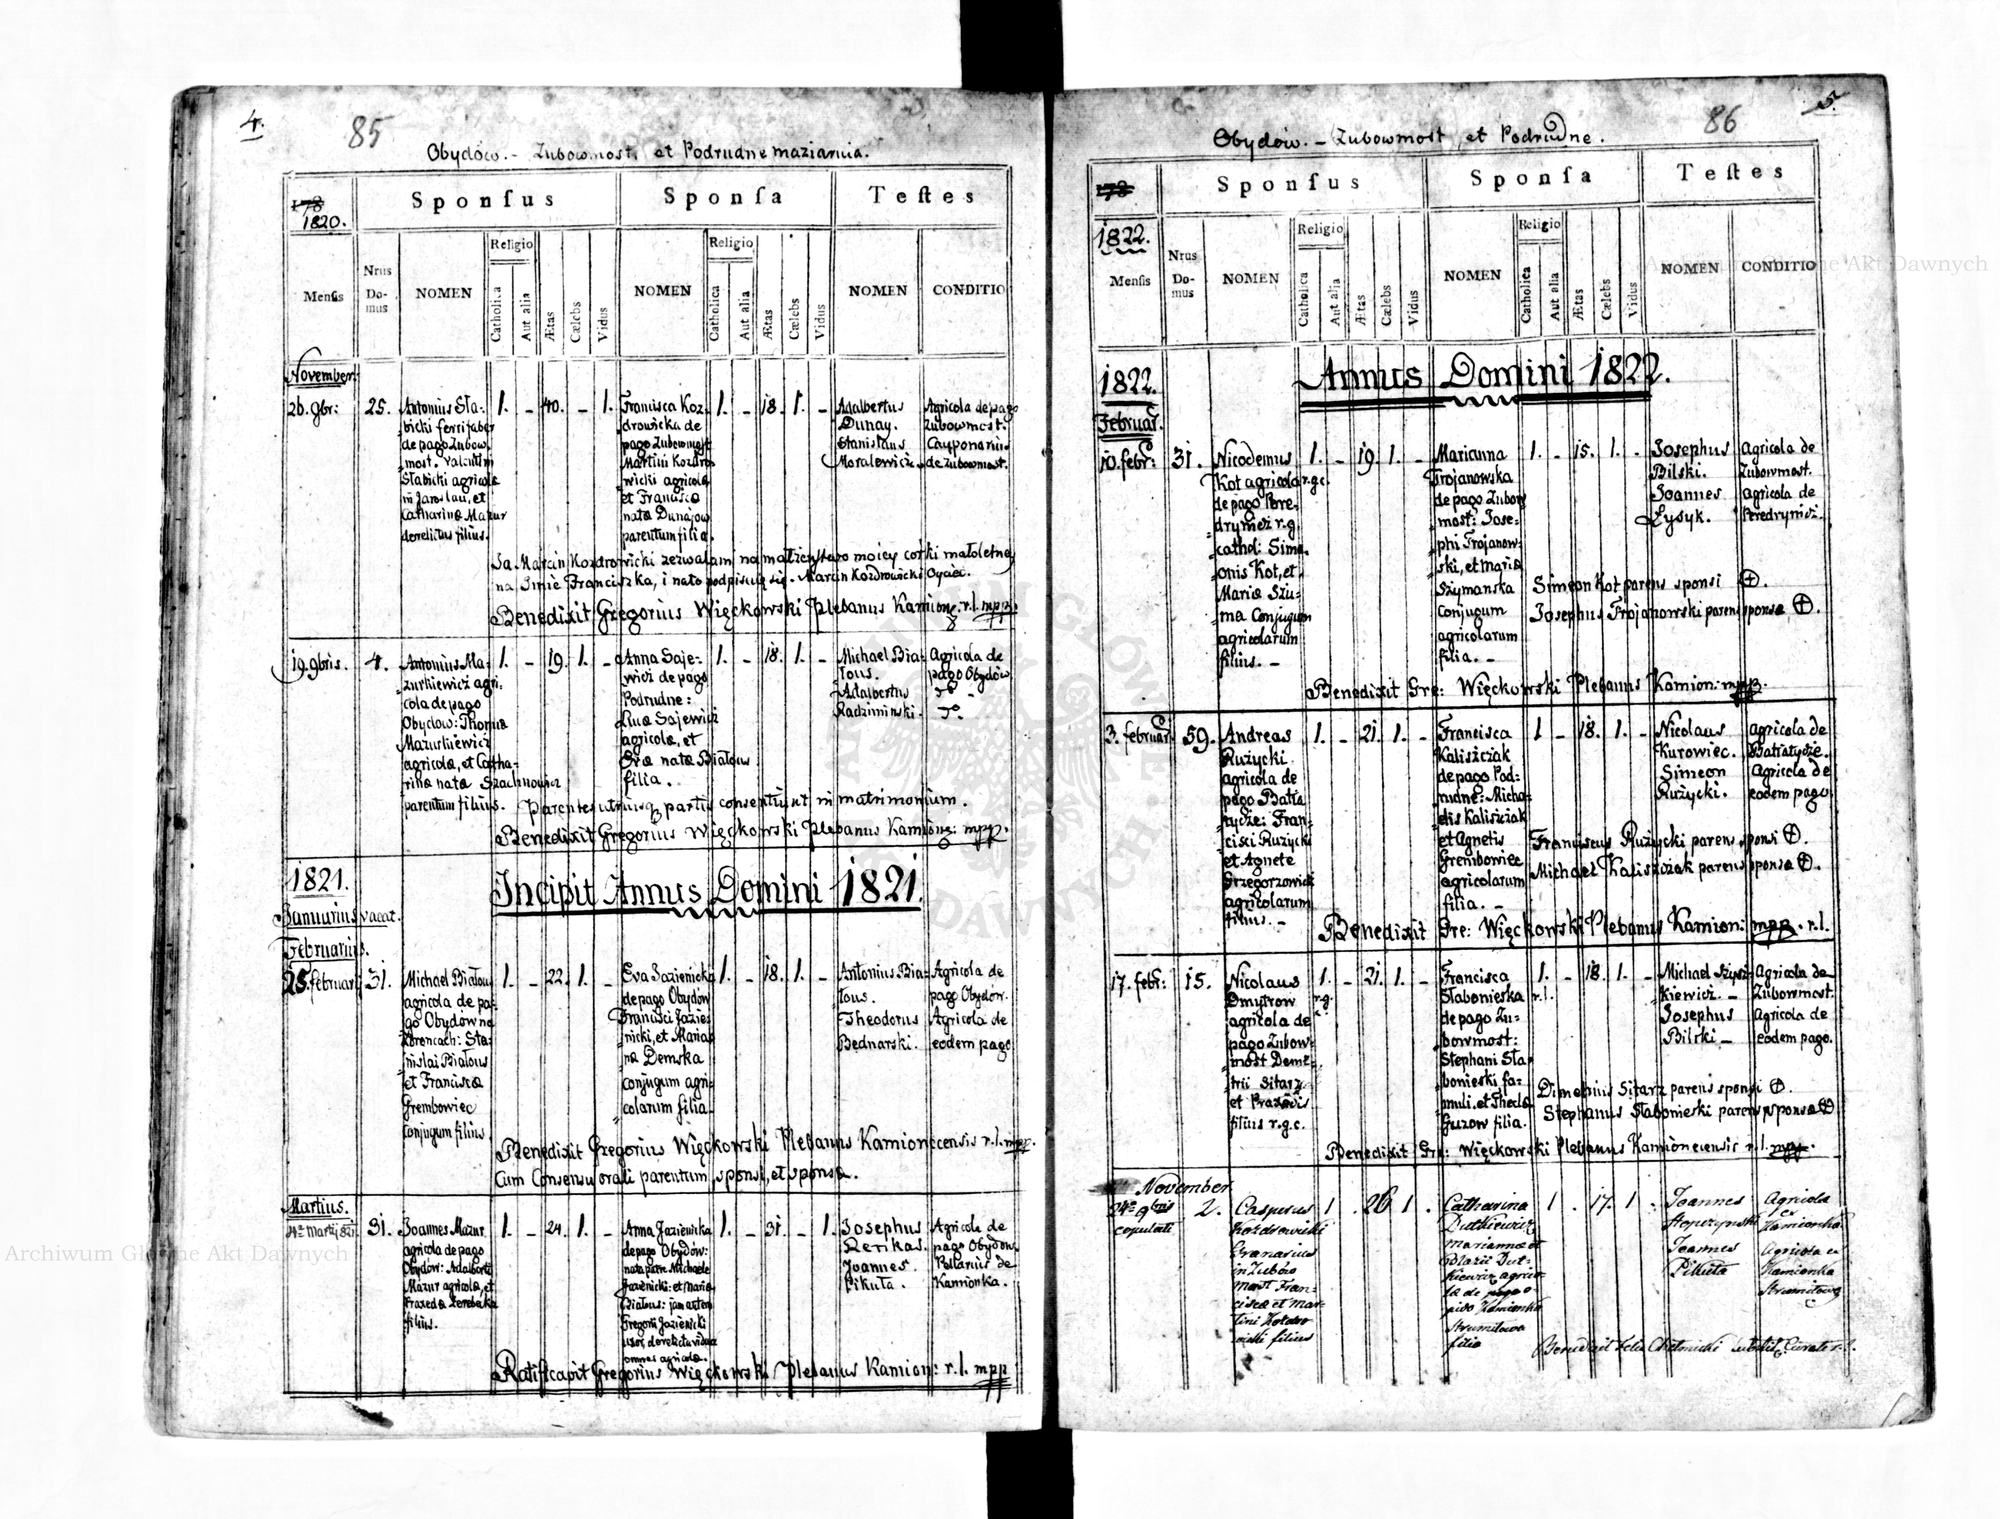 4.
85
Obydów. - Zubowmost, et Podrudne maziarnia.
178
1820.
Sponsus
Sponsa
Testes
Mensis
Nrus Domus
NOMEN
Religio
Catholica
Aut alia
Ætas
Cælebs
Vidus
NOMEN
Religio
Catholica
Aut alia
Ætas
Cælebs
Vidus
NOMEN
CONDITIO
November:
26. 9br: 25. 1. - 40. - 1. 1. - 18. 1. -
Antonius Sła-
bicki ferrifaber
de pago Zubow-
most. Valentini
Słabicki agricolæ
in Jaroslau, et
Catharinæ Mazur
derelictus filius.
Francisca Koz-
drowicka de
pago Zubowmost
Martini Kozdro-
wicki agricolæ
et Franciscæ
natæ Dunajow
parentum filia.
Adalbertus
Dunay.
Stanislaus
Moralewicz.
Agricola de pago
Zubowmost.
Cauponarius
de Zubowmost.
Ja Marcin Kozdrowicki zezwalam na małżeństwo moiey corki małoletney
na Imie Franciszka, i na to podpisuię się. Marcin Kozdrowicki Oyciec.
Benedixit Gregorius Więckowski Plebanus Kamion: r.l. mpp.
19. 9bris. 4. 1. - 19. 1. - 1. - 18. 1. -
Antonius Ma-
zurkiewicz agri-
cola de pago
Obydow: Thomæ
Mazurkiewicz
agricolæ, et Catha-
rinæ natæ Szachnowicz
parentum filius.
Anna Saje-
wicz de pago
Podrudne:
Lucæ Sajewicz
agricolæ, et
Evæ natæ Białous
filia.
Michael Bia-
łous.
Adalbertus
Radziminski.
Agricola de
pago Obydów
Parentes utriusq partis consentiunt in matrimonium.
Benedixit Gregorius Więckowski Plebanus Kamion: mpp.
1821.
Incipit Annus Domini 1821.
Januarius vacat.
Februarius.
25. februari 31. 1. - 22. 1. - 1. - 18. 1. -
Michael Białous
agricola de pa-
go Obydów na
Korencach: Sta-
nislai Białous
et Franciscæ
Grembowiec
Conjugum filius
Eva Jazienicka
de pago Obydów
Francisci Jazie-
nicki, et Maria-
næ Demska
conjugum agri-
colarum filia.
Antonius Bia-
łous.
Theodorus
Bednarski.
Agricola de
pago Obydow.
Agricola de
eodem pago
Benedixit Gregorius Więckowski Plebanus Kamionecensis r.l. mpp.
Cum Consensu orali parentum sponsi, et sponsæ.
Martius.
4ta Martij 821. 31. 1. - 24. 1. - 1. - 31. - 1.
Joannes Mazur
agricola de pago
Obydów: Adalberti
Mazur agricolæ, et
Praxedæ Zerebecka
filius.
Anna Jazienicka
de pago Obydów:
nata patre Michaele
Jazienicki: et Maria
Białous: jam autem
Gregorii Jazienicki
uxor derelicta vidua
omnes agricolæ.
Josephus
Zerikas.
Joannes
Pikuta.
Agricola de
pago Obydow.
Pellarius de
Kamionka.
Ratificavit Gregorius Więckowski Plebanus Kamion: r.l. mpp
5.
86
Obydów. - Zubowmost, et Podrudne.
178
1822.
Sponsus
Sponsa
Testes
Mensis
Nrus Domus
NOMEN
Religio
Catholica
Aut alia
Ætas
Cælebs
Vidus
NOMEN
Religio
Catholica
Aut alia
Ætas
Cælebs
Vidus
NOMEN
CONDITIO
1822.
Annus Domini 1822.
Februar.
10. febr: 31. 1. - 19. 1. - 1. - 15. 1. -
Nicodemus
Kot agricola r.g.c.
de pago Pere-
drymcz r.g.
cathol: Sime-
onis Kot, et
Mariæ Szu-
ma Conjugum
agricolarum
filius. -
Marianna
Trojanowska
de pago Zubow
most: Jose-
phi Trojanow-
ski, et Mariæ
Szymanska
Conjugum
agricolarum
filia. -
Josephus
Bilski.
Joannes
Łysyk.
Agricola de
Zubowmost.
agricola de
Peredrymcz.
Simeon Kot parens sponsi ⊕.
Josephus Trojanowski parens sponsæ ⊕.
Benedixit Gre: Więckowski Plebanus Kamion: mpp.
3. februar: 59. 1. - 21. 1. - 1 - 18. 1. -
Andreas
Rużycki
agricola de
pago Batia
tycze: Fran-
cisci Rużycki
et Agnete
Grzegorzowicz
agricolarum
filius. -
Francisca
Kaliszczak
de pago Pod-
rudne: Micha-
elis Kaliszczak
et Agnetis
Grembowiec
agricolarum
filia. -
Nicolaus
Kurowiec.
Simeon
Rużycki.
agricola de
Batiatycze.
Agricola de
eodem pago.
Franciscus Rużycki parens sponsi ⊕.
Michael Kaliszczak parens sponsæ ⊕.
Benedixit Gre: Więckowski Plebanus Kamion: mpp. r.l.
17. febr: 15. 1. - 21. 1. - 1. - 18. 1. -
Nicolaus
Dmytrow r.g.
agricola de
pago Zubow-
most Deme-
trii Sitarz
et Praxedis
filius r.g.c.
Francisca
Słabonieska r.l.
de pago Zu-
bowmost:
Stephani Sła-
bonieski fa-
muli, et Theclæ
Guzow filia.
Michael Szysz-
kiewicz. -
Josephus
Bilski -
Agricola de
Zubowmost.
Agricola de
eodem pago.
Dimetrius Sitarz parens sponsi ⊕.
Stephanus Słabonieski parens sponsæ ⊕
Benedixit Gre: Więckowski Plebanus Kamionecensis r.l. mpp.
November
24ta 9bris 2. 1 . 26 1 . 1 . 17. 1 .
copulati
Casperus
Kozdrowicki
Granarius
in Zubow
most Fran-
ciscæ et Mar-
tini Kozdro
wicki filius
Catharina
Dutkiewicz
Mariannæ et
Blazii Dut-
kiewicz agrico-
læ de op-
pido Kamionka
Strumilowa
filia
Joannes
Stopczynski
Joannes
Pikuta
Agricola
ex
Kamionka
Agricola ex
Kamionka
Strumilowa
Benedixit Felix Chełmicki Curatus r.l.